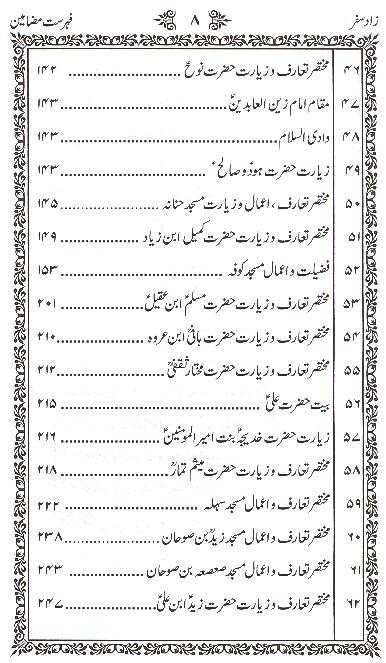 زاد سفر ۸ فہرست مضامین
۴۶ مختصر تعارف و زیارت حضرت نوحؑ ........ ۱۴۲
۴۷ مقام امام زین العابدینؑ ........ ۱۴۳
۴۸ وادی السلام ........ ۱۴۳
۴۹ زیارت حضرت ہودؑ و صالحؑ ........ ۱۴۳
۵۰ مختصر تعارف، اعمال و زیارت مسجد حنانہ ........ ۱۴۵
۵۱ مختصر تعارف و زیارت حضرت کمیل ابن زیاد ........ ۱۴۹
۵۲ فضیلت و اعمال مسجد کوفہ ........ ۱۵۳
۵۳ مختصر تعارف و زیارت حضرت مسلمؑ ابن عقیلؑ ........ ۲۰۱
۵۴ مختصر تعارف و زیارت حضرت ہانیؒ ابن عروہ ........ ۲۱۰
۵۵ مختصر تعارف و زیارت حضرت مختار ثقفیؒ ........ ۲۱۲
۵۶ بیت حضرت علیؑ ........ ۲۱۵
۵۷ زیارت حضرت خدیجہؑ بنت امیر المومنینؑ ........ ۲۱۶
۵۸ مختصر تعارف و زیارت حضرت میثم تمارؒ ........ ۲۱۸
۵۹ مختصر تعارف و اعمال مسجد سہلہ ........ ۲۲۲
۶۰ مختصر تعارف و اعمال مسجد زیدؒ بن صوحان ........ ۲۳۸
۶۱ مختصر تعارف و اعمال مسجد صعصعہ بن صوحان ........ ۲۴۳
۶۲ مختصر تعارف و زیارت حضرت زیدؑ ابن علیؑ ........ ۲۴۷